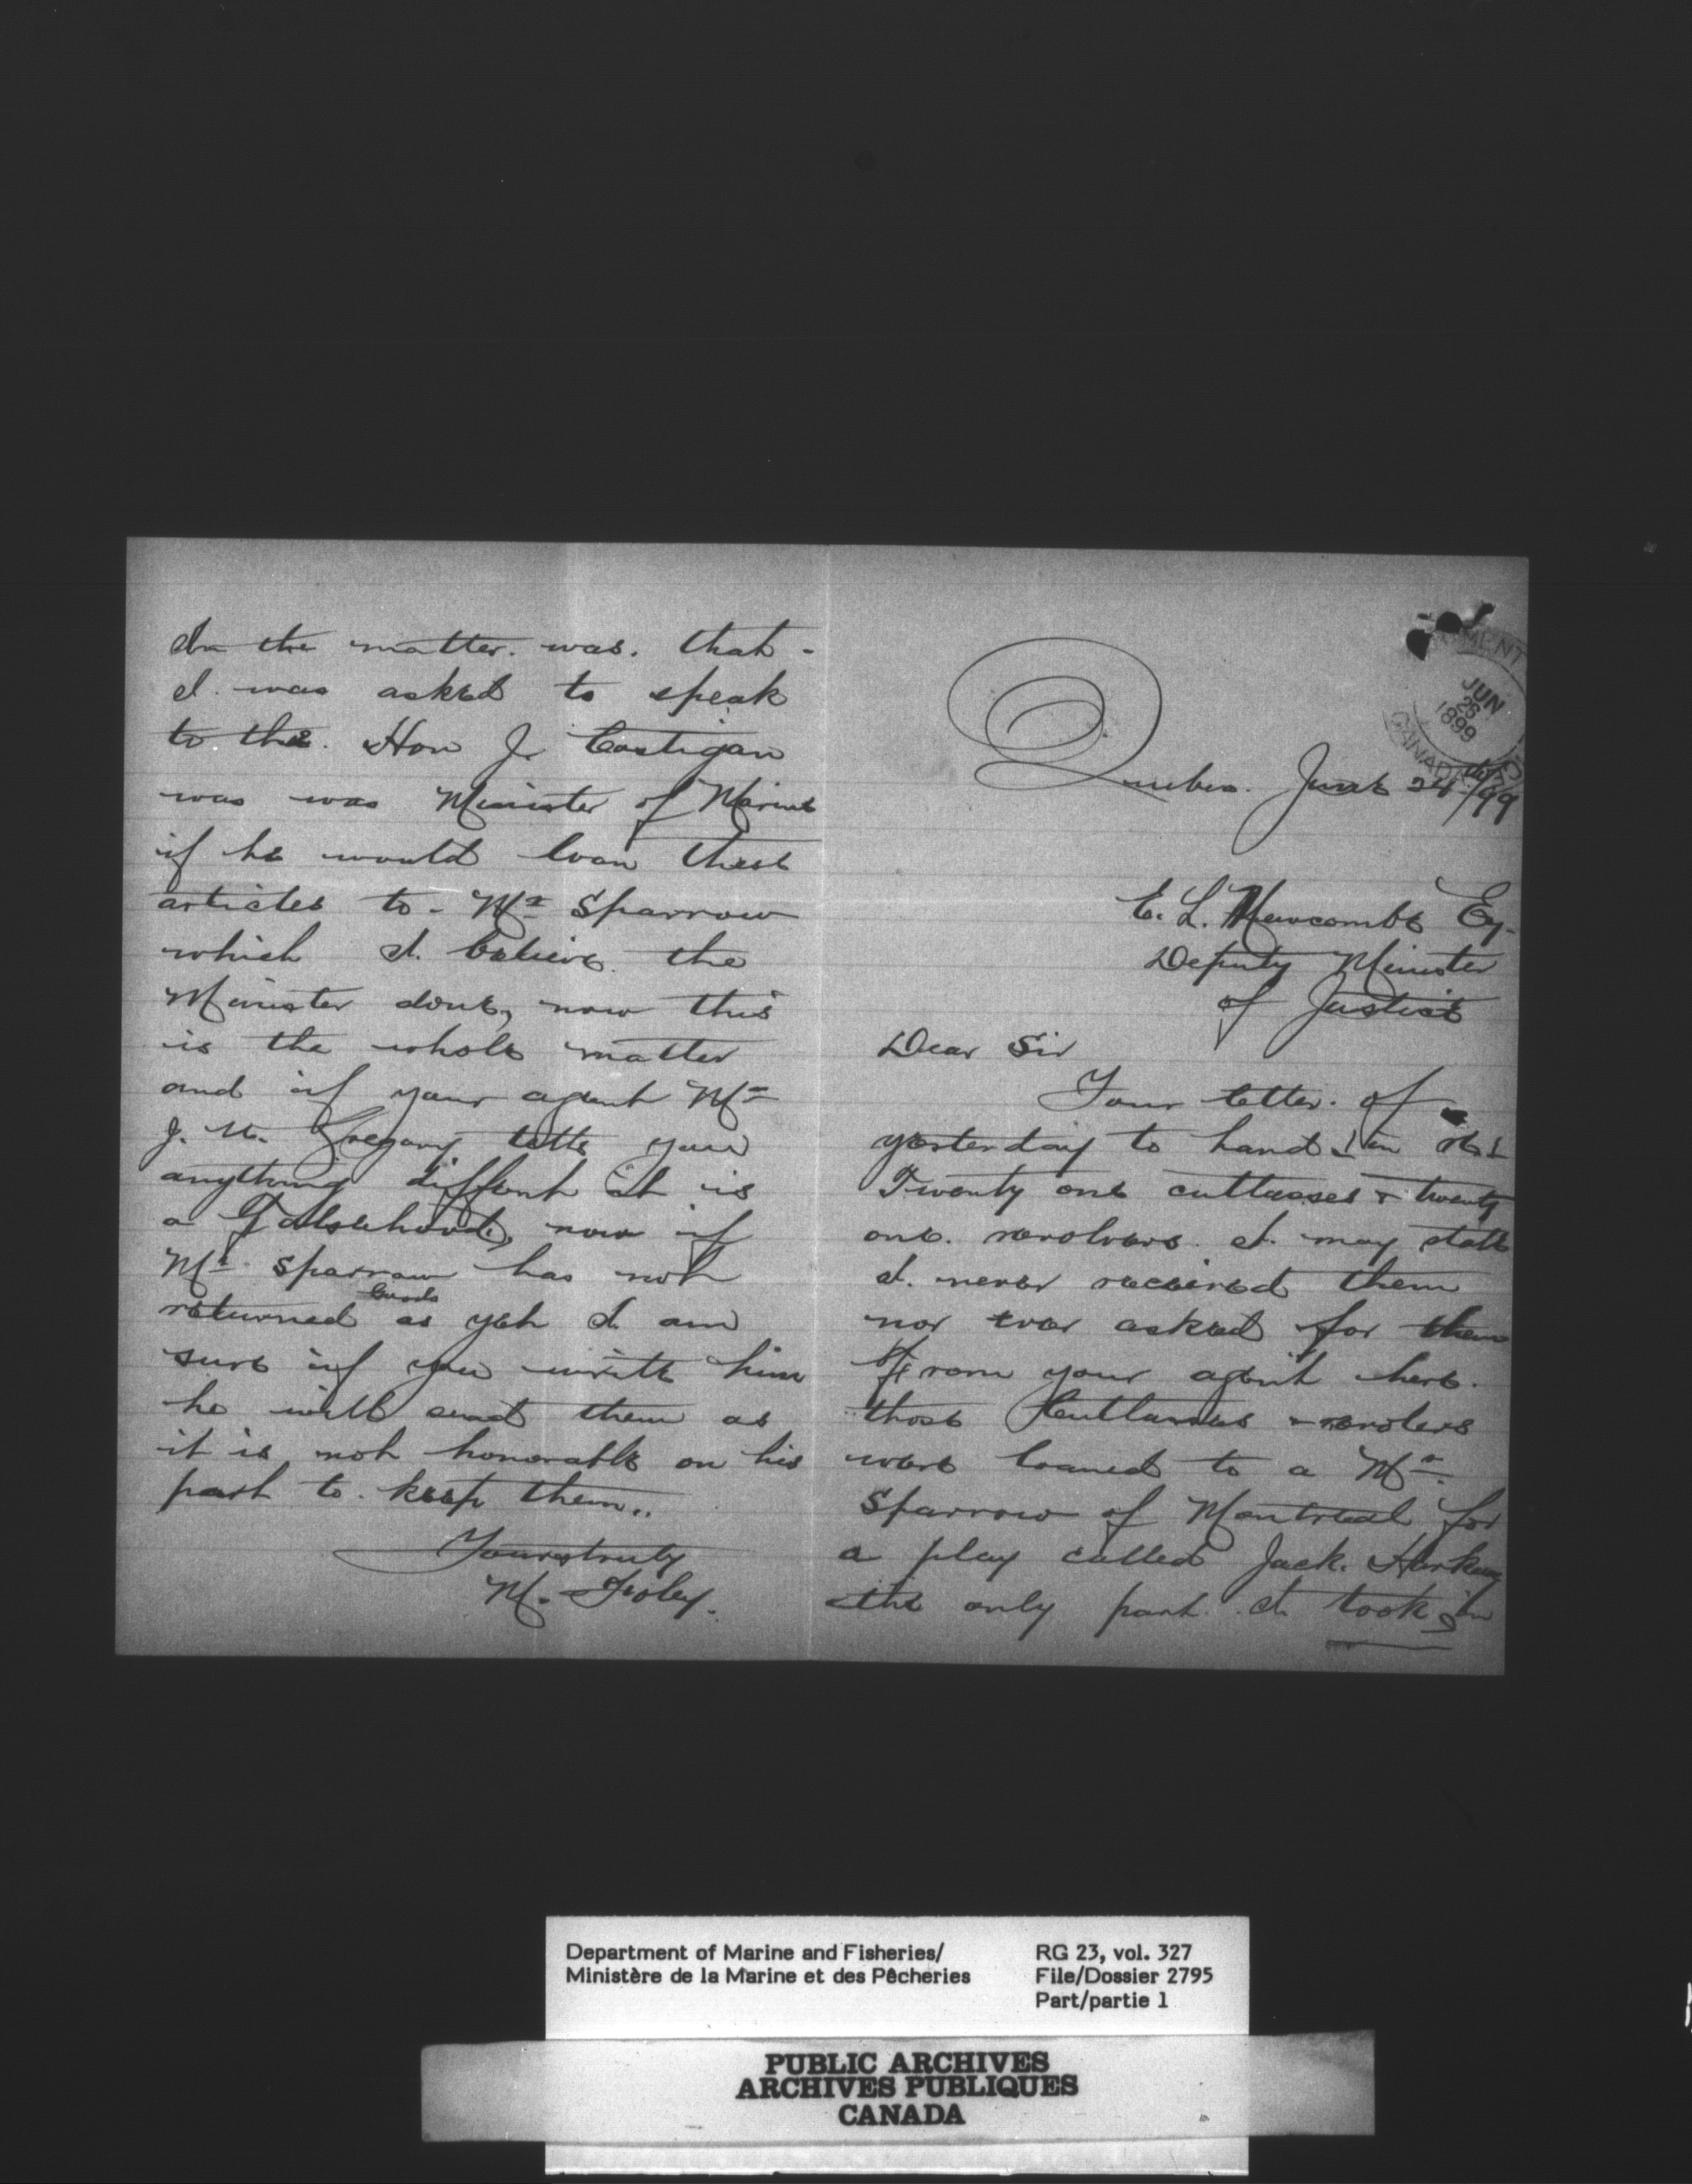 JUN
26
1899
CANADA
Quebec. June 24th/99
E. L. Newcombe Esq.
Deputy Minister
of Justice
Dear Sir
Your letter. of
yesterday to hand in
Twenty one cuttasses & twenty
one. revolvers. I. may state
I. never received them
nor ever asked for them
from your agent here.
those Cutlasses & revolers
were loaned to a Mr.
Sparrow of Montreal for
a play called Jack. Harkaway
the only part. I. took in
In the matter. was. that -
I. was asked to speak
to the. Hon J. Costigan
was was Minister of Marine
if he would loan these
articles to - Mr Sparrow
which I. believe. the
Minister done, now this
is the whole matter
and if your agent Mr
J. U. Gregory tells you
anything diffent it is
a Falsehood, now if
Mr Sparrow has not
returned goods as yet I am
sure if you write him
he will send them as
it is not honorable on his
part to. keep them..
Yours truly
M. Foley.
Department of Marine and Fisheries/
Ministère de la Marine et des Pêcheries
RG 23, vol. 327
File/Dossier 2795
Part/partie 1
PUBLIC ARCHIVES
ARCHIVES PUBLIQUES
CANADA